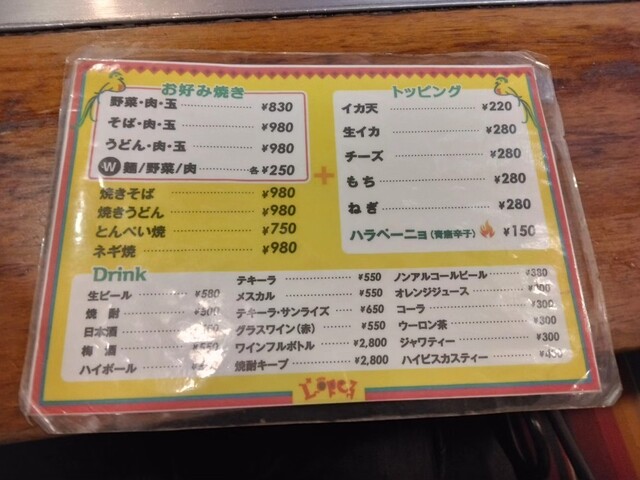 お好み焼き
野菜・肉・玉 ¥830
そば・肉・玉 ¥980
うどん・肉・玉 ¥980
W 麺/野菜/肉 各¥250
焼きそば ¥980
焼きうどん ¥980
とんぺい焼 ¥750
ネギ焼 ¥980
+
トッピング
イカ天 ¥220
生イカ ¥280
チーズ ¥280
もち ¥280
ねぎ ¥280
ハラペーニョ(青唐辛子) ¥150
Drink
生ビール ¥580
焼酎 ¥500
日本酒
梅酒 ¥550
ハイボール
テキーラ ¥550
メスカル ¥550
テキーラ・サンライズ ¥650
グラスワイン(赤) ¥550
ワインフルボトル ¥2,800
焼酎キープ ¥2,800
ノンアルコールビール ¥380
オレンジジュース ¥300
コーラ ¥300
ウーロン茶 ¥300
ジャワティー ¥300
ハイビスカスティー
Lopez